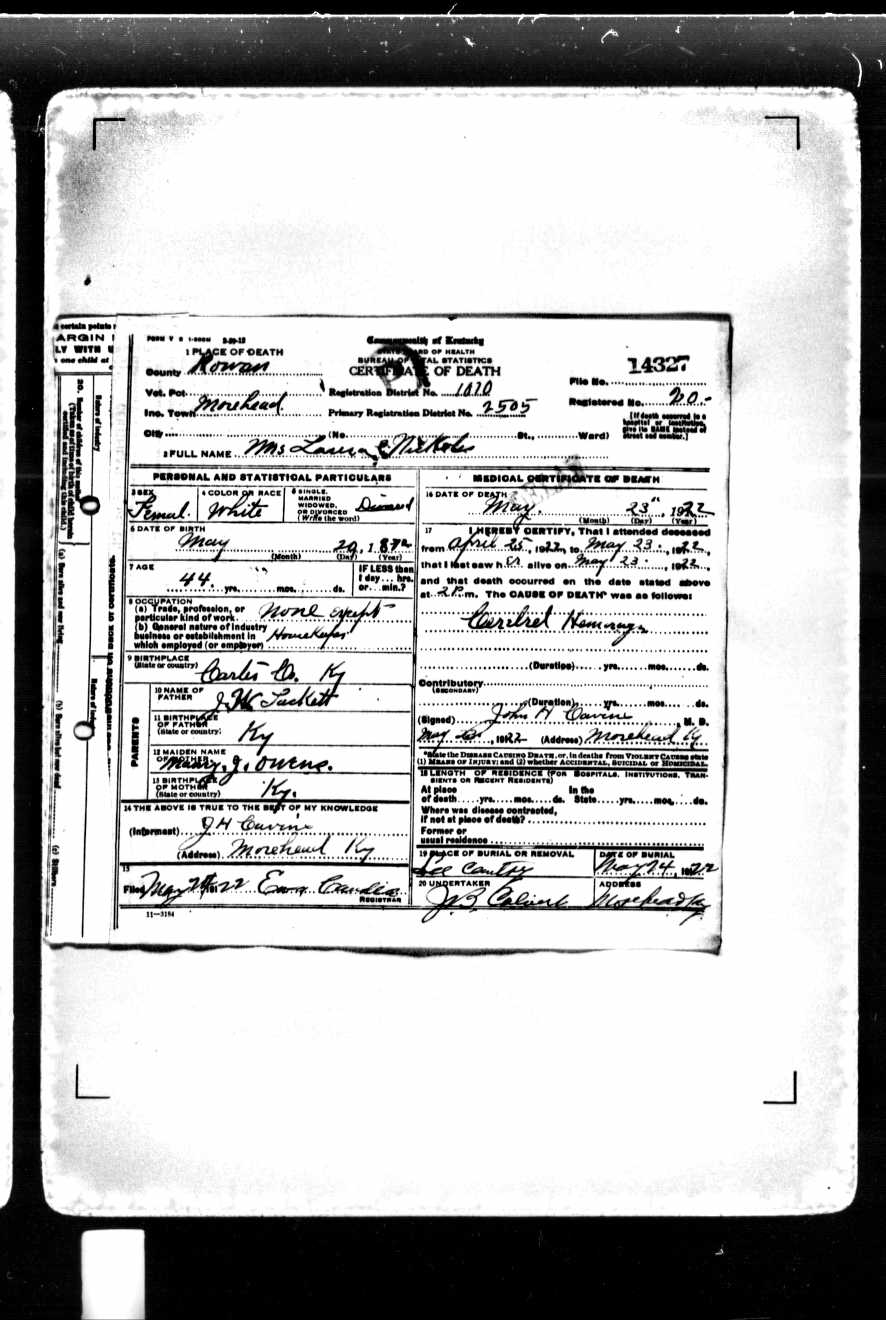 FORM V S 1-200M 2-20-19
Commonwealth of Kentucky
STATE BOARD OF HEALTH
BUREAU OF VITAL STATISTICS
CERTIFICATE OF DEATH
1 PLACE OF DEATH
County Rowan
File No. 14327
Vot. Pct.
Registration District No. 1010
Registered No. 20-
Inc. Town Morehead.
Primary Registration District No. 2505
[If death occurred in a hospital or institution, give its NAME instead of street and number.]
City (No. St., Ward)
2 FULL NAME Mrs Laura Nickols
PERSONAL AND STATISTICAL PARTICULARS
3 SEX Femal.
4 COLOR OR RACE White
5 SINGLE, MARRIED WIDOWED, OR DIVORCED (Write the word) Divorced
6 DATE OF BIRTH
May 29, 187
(Month) (Day) (Year)
7 AGE
44. yrs. mos. ds.
IF LESS than 1 day... hrs. or... min.?
8 OCCUPATION
(a) Trade, profession, or particular kind of work none except
(b) General nature of industry business or establishment in which employed (or employer) Housekeeper
9 BIRTHPLACE
(State or country) Carter Co. Ky
PARENTS
10 NAME OF FATHER J. Tackett
11 BIRTHPLACE OF FATHER (State or country) Ky
12 MAIDEN NAME OF MOTHER J. Owens.
13 BIRTHPLACE OF MOTHER (State or country) Ky.
14 THE ABOVE IS TRUE TO THE BEST OF MY KNOWLEDGE
(Informant) J H
(Address) Morehead Ky
15
Filed May 22
REGISTRAR
11-3184
MEDICAL CERTIFICATE OF DEATH
16 DATE OF DEATH
May. 23", 1922
(Month) (Day) (Year)
17 I HEREBY CERTIFY, That I attended deceased
from April 25, 1922, to May 23, 1922,
that I last saw her alive on May 23, 1922,
and that death occurred on the date stated above
at 2 P. m. The CAUSE OF DEATH* was as follows:
Ceribrel Hemorage
(Duration) yrs. mos. ds.
Contributory
(SECONDARY)
(Duration) yrs. mos. ds.
(Signed) John H , M. D.
May , 1922 (Address) Morehead Ky
*State the DISEASE CAUSING DEATH, or, in deaths from VIOLENT CAUSES state
(1) MEANS OF INJURY; and (2) whether ACCIDENTAL, SUICIDAL or HOMICIDAL.
18 LENGTH OF RESIDENCE (FOR HOSPITALS, INSTITUTIONS, TRANSIENTS OR RECENT RESIDENTS)
At place of death yrs. mos. ds. In the State yrs. mos. ds.
Where was disease contracted,
if not at place of death?
Former or
usual residence
19 PLACE OF BURIAL OR REMOVAL
DATE OF BURIAL
May 24, 1922
20 UNDERTAKER
ADDRESS
Calvert Morehead Ky